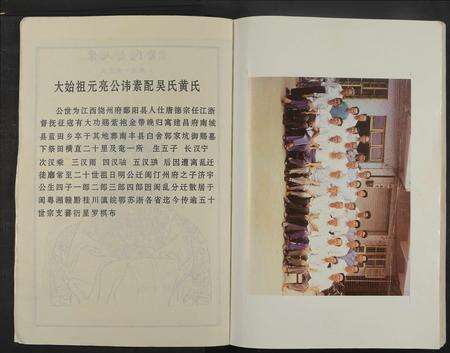 大始祖元亮公讳素配吴氏黄氏
公世为江西饶州府鄱阳县人仕唐德宗任江浙
督抚征寇有大功赐紫袍金带晚归寓建昌府南城
县蓝田乡卒于其地葬南丰县白舍郭家坑御赐墓
下祭田横直二十里及庵一所 生五子 长汉宁
次汉乘 三汉雨 四汉 五汉 后因遭离乱迁
徙靡常至二十世祖日明公迁闽汀州府之子济宇
公生四子一郎二郎三郎四郎因闽乱分迁散居于
闽粤湘赣黔桂川滇皖鄂苏浙各省迄今传逾五十
世宗支蕃衍星罗棋布